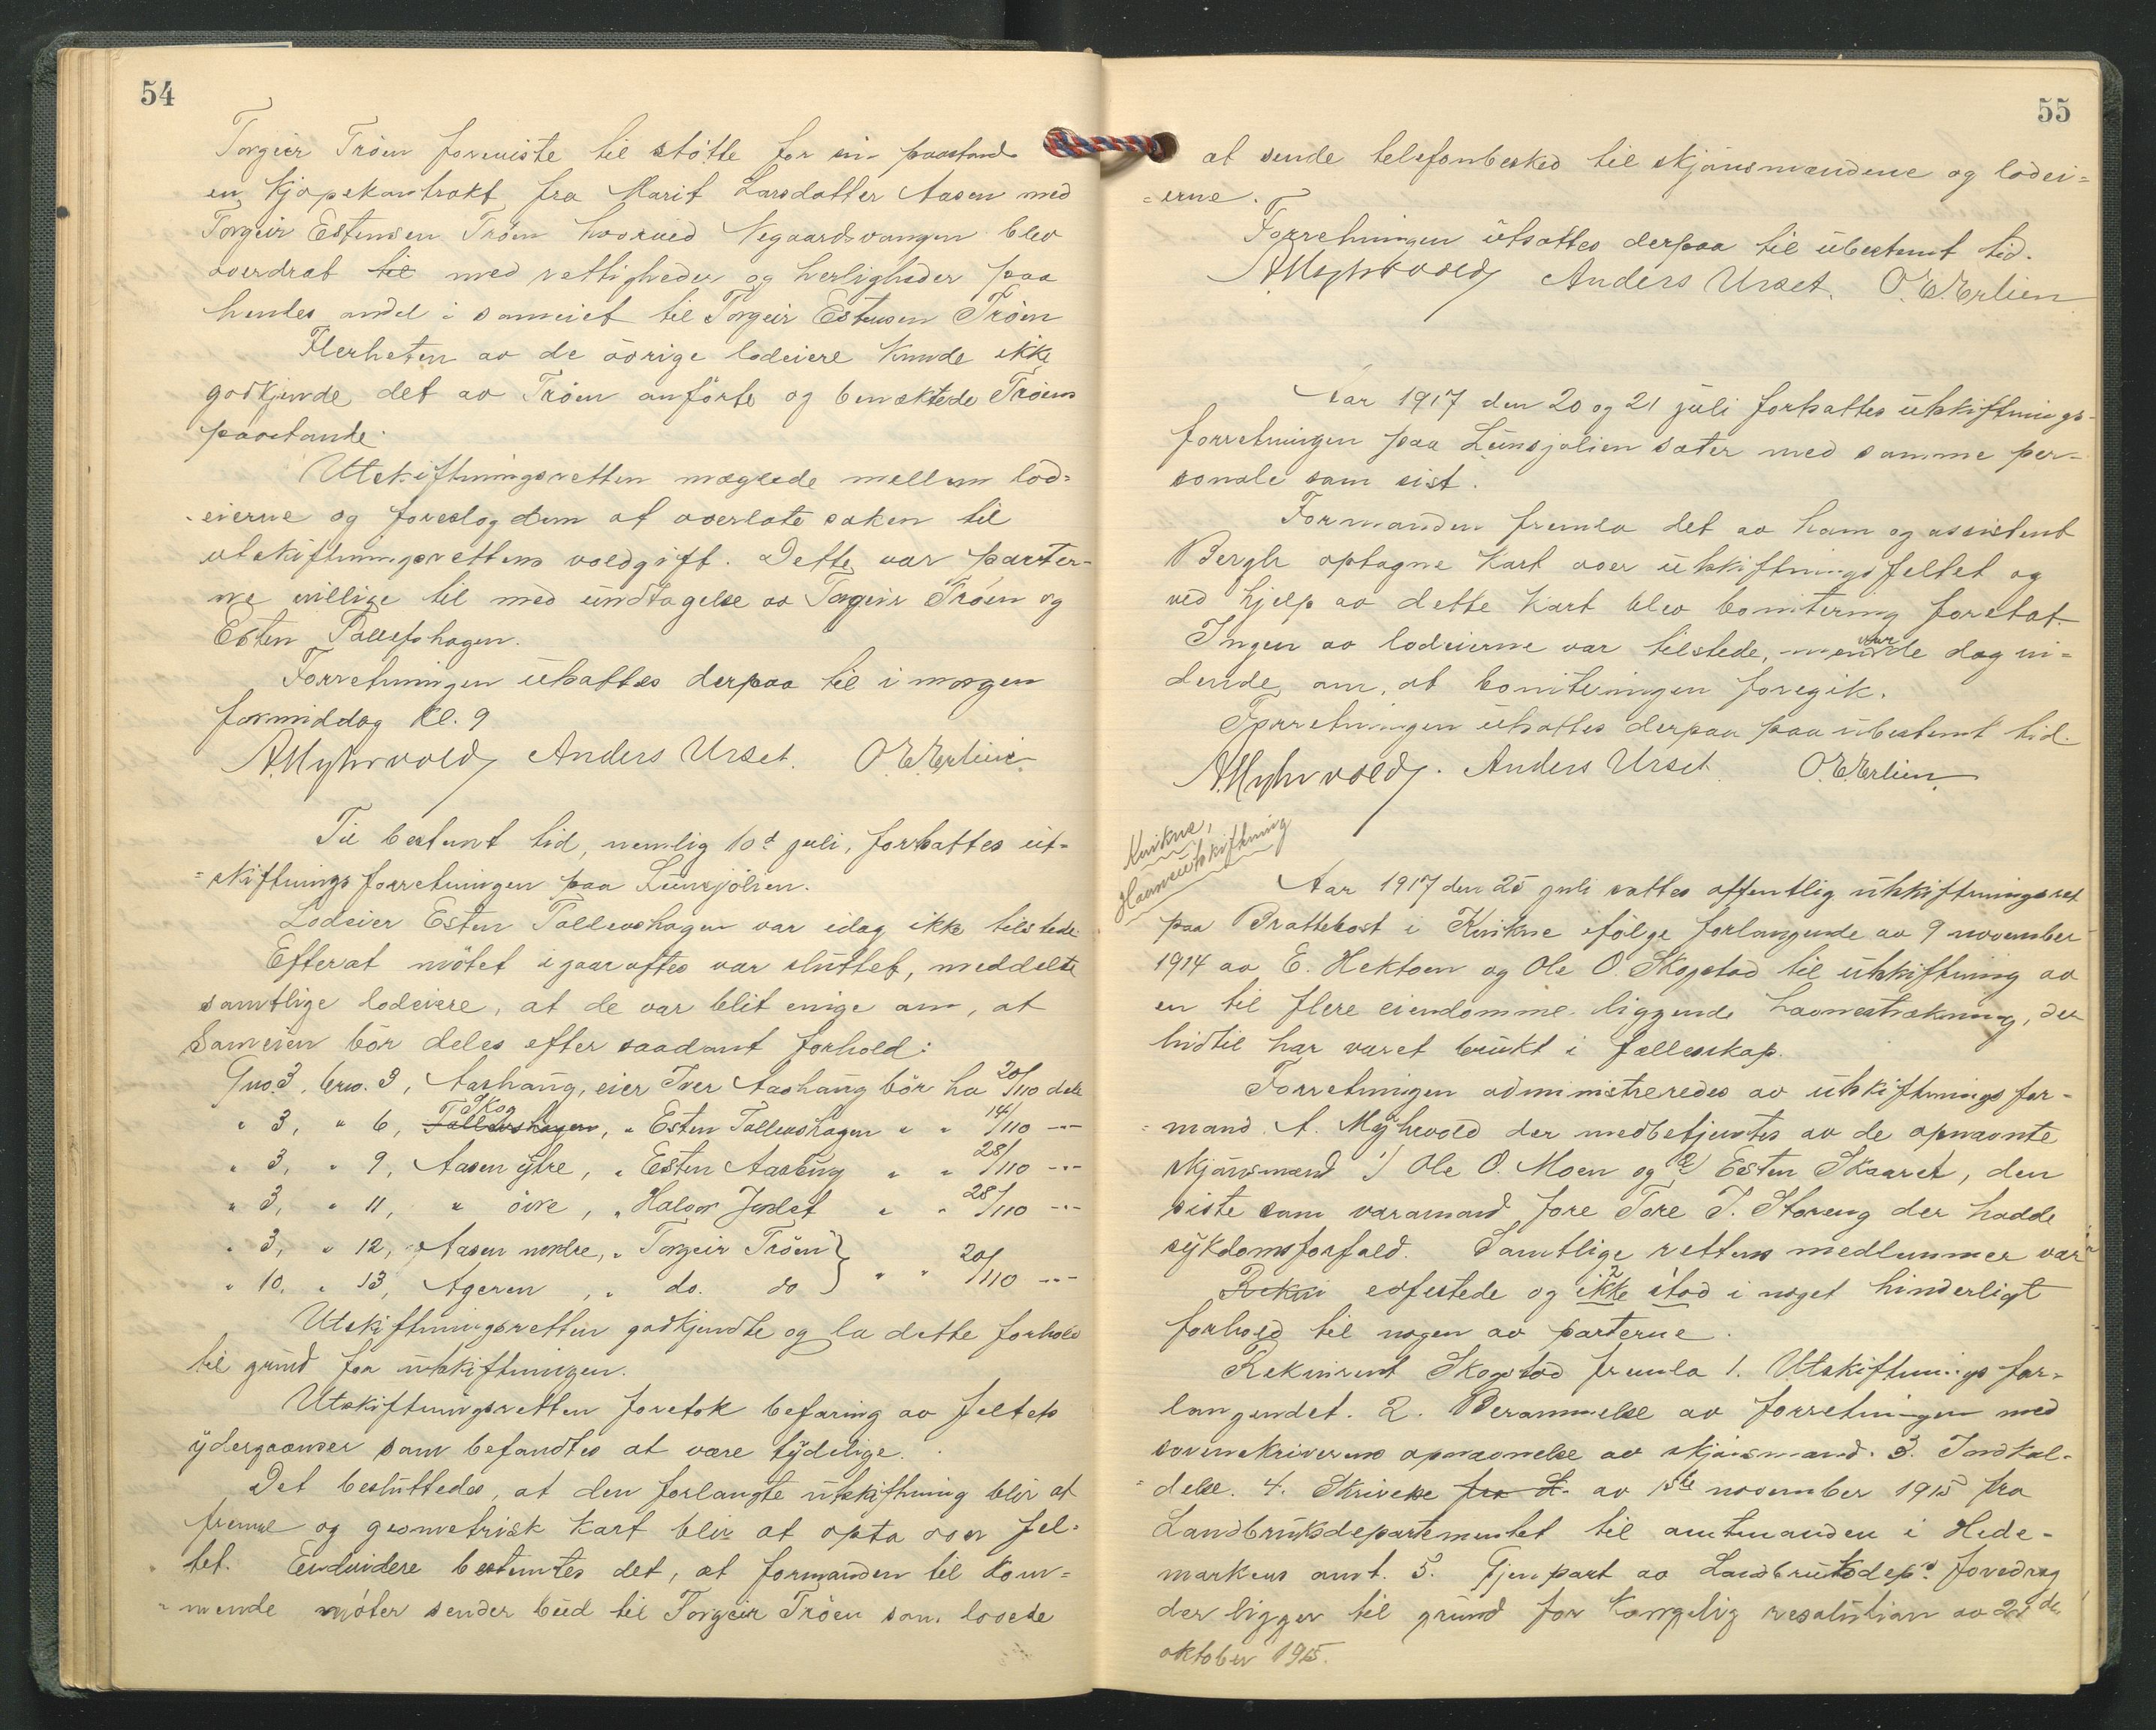 54
Torgeir Tröen foreviste til støtte for sin paastand
en kjøpekontrakt fra Marit Larsdatter Aasen med
Torgeir Estensen Tröen hvorved Negaardsvangen blev
overdrat til med rettigheder og herligheder paa
hendes andel i sameiet til Torgeir Estensen Tröen
Flerheten av de övrige lodeiere kunde ikke
godkjende det av Tröen anförte og benektede Tröens
paastande.
Utskiftningsretten mæglede mellem lod=
eierne og foreslog dem at overlate saken til
utskiftningsrettens voldgift. Dette var parter-
ne villige til med undtagelse av Torgeir Tröen og
Esten Tallefshagen.
Forretningen utsattes derpaa til i morgen
formiddag kl. 9
A. Myhrvold Anders Urset. O. E. Erlien
Til bestemt tid, nemlig 10d juli, fortsattes ut=
=skiftningsforretningen paa Lunsjölien.
Lodeier Esten Tallevshagen var idag ikke tilstede.
Efterat mötet igaaraftes var sluttet, meddelte
samtlige lodeiere, at de var blit enige om, at
Sameien bör deles efter saadant forhold:
Gno. 3, brno. 3, Aashaug, eier Iver Aashaug bör ha 20/110 dele
" 3, " 6, Tallevshagen Skog, " Esten Tallevshagen " " 14/110 ---
" 3, " 9, Aasen ytre, " Esten Aasbug " " 28/110 ---
" 3, " 11, " övre, " Halvor Jordet " " 28/110 ---
" 3, " 12, Aasen nordre, " Torgeir Tröen } " " 20/110 ---
" 10, " 13, Ageren, " do. do
Utskiftningsretten godkjendte og la dette forhold
til grund for utskiftningen.
Utskiftningsretten foretok befaring av feltets
ydergrænser som befandtes at være tydelige.
Det besluttedes, at den forlangte utskiftning blir at
fremme og geometrisk kart blir at opta over fel=
tet. Endvidere bestemtes det, at formanden til kom=
=mende möter sender bud til Torgeir Tröen som lovede
55
at sende telefonbesked til skjönsmændene og lodei=
=erne.
Forretningen utsattes derpaa til ubestemt tid.
A. Myhrvold Anders Urset. O. E. Erlien
Aar 1917 den 20 og 21 juli fortsattes utskiftnings-
forretningen paa Lunsjölien sæter med samme per-
sonale som sist.
Formanden fremla det av ham og assistent
Bergh optagne kart over utskiftningsfeltet og
ved hjelp av dette kart blev bonitering foretat.
Ingen av lodeierne var tilstede, men var de dog vi=
dende om, at boniteringen foregik.
Forretningen utsattes derpaa paa ubestemt tid.
A. Myhrvold. Anders Urset O. E. Erlien.
Kvikne,
Havneutskiftning
Aar 1917 den 25 juli sattes offentlig utskiftningsret
paa Brattekost i Kvikne ifölge forlangende av 9 november
1914 av E. Hektoen og Ole O. Skogstad til utskiftning av
en til flere eiendomme liggende havnestrækning, der
hidtil har været brukt i fællesskap.
Forretningen administreredes av utskiftningsfor-
=mand A. Myhrvold der medbetjentes av de opnævnte
skjönsmænd 1) Ole O. Moen og 2) Esten Skaaret, den
siste som varamand fore Tore J. Storeng der hadde
sykdomsforfald. Samtlige rettens medlemmer var
Rekvi edfestede og ikke stod i noget hinderligt
forhold til nogen av parterne.
Rekvirent Skogstad fremla 1. Utskiftningsfor-
langendet. 2. Berammelse av forretningen med
sorenskriverens opnævnelse av skjönsmænd. 3. Indkal-
=delse. 4. Skrivelse fra L. av 1ste november 1915 fra
Landbruksdepartementet til amtmanden i Hede-
markens amt. 5. Gjenpart av Landbruksdep. foredrag
der ligger til grund for kongelig resolution av 22de
oktober 1915.